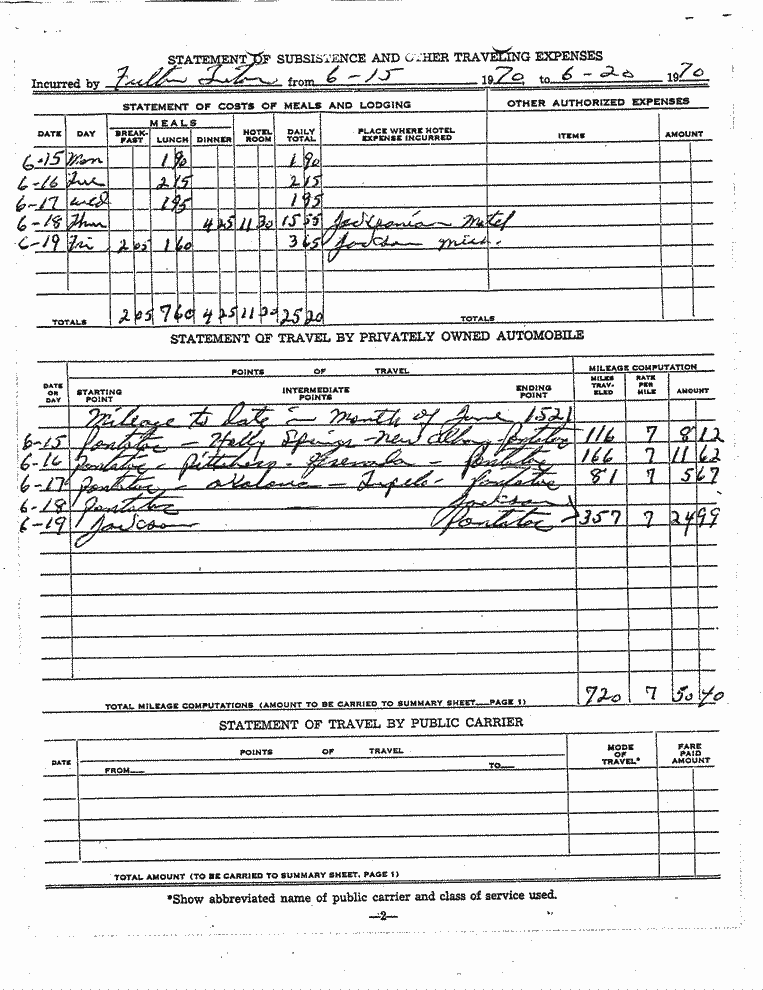 STATEMENT OF SUBSISTENCE AND OTHER TRAVELING EXPENSES
Incurred by Fulton from 6-15 1970 to 6-20 1970
STATEMENT OF COSTS OF MEALS AND LODGING OTHER AUTHORIZED EXPENSES
DATE DAY MEALS BREAK-FAST LUNCH DINNER HOTEL ROOM DAILY TOTAL PLACE WHERE HOTEL EXPENSE INCURRED ITEMS AMOUNT
6-15 Mon 1 90 1 90
6-16 Tue 2 15 2 15
6-17 Wed 1 95 1 95
6-18 Thur 4 25 11 30 15 55 Jacksonian Motel
6-19 Fri 2 05 1 60 3 65 Jackson Miss.
TOTALS 2 05 7 60 4 25 11 30 25 20 TOTALS
STATEMENT OF TRAVEL BY PRIVATELY OWNED AUTOMOBILE
DATE OR DAY POINTS OF TRAVEL MILEAGE COMPUTATION
STARTING POINT INTERMEDIATE POINTS ENDING POINT MILES TRAV-ELED RATE PER MILE AMOUNT
Mileage to Date in Month of June 1521
6-15 Pontotoc - Holly Springs - New Albany Pontotoc 116 7 8 12
6-16 Pontotoc - Pittsboro - Grenada - Pontotoc 166 7 11 62
6-17 Pontotoc - Okolona - Tupelo - Pontotoc 81 7 5 67
6-18 Pontotoc Jackson
6-19 Jackson Pontotoc 357 7 24 99
TOTAL MILEAGE COMPUTATIONS (AMOUNT TO BE CARRIED TO SUMMARY SHEET PAGE 1) 720 7 50 40
STATEMENT OF TRAVEL BY PUBLIC CARRIER
DATE POINTS OF TRAVEL MODE OF TRAVEL* FARE PAID AMOUNT
FROM TO
TOTAL AMOUNT (TO BE CARRIED TO SUMMARY SHEET, PAGE 1)
*Show abbreviated name of public carrier and class of service used.
—2—